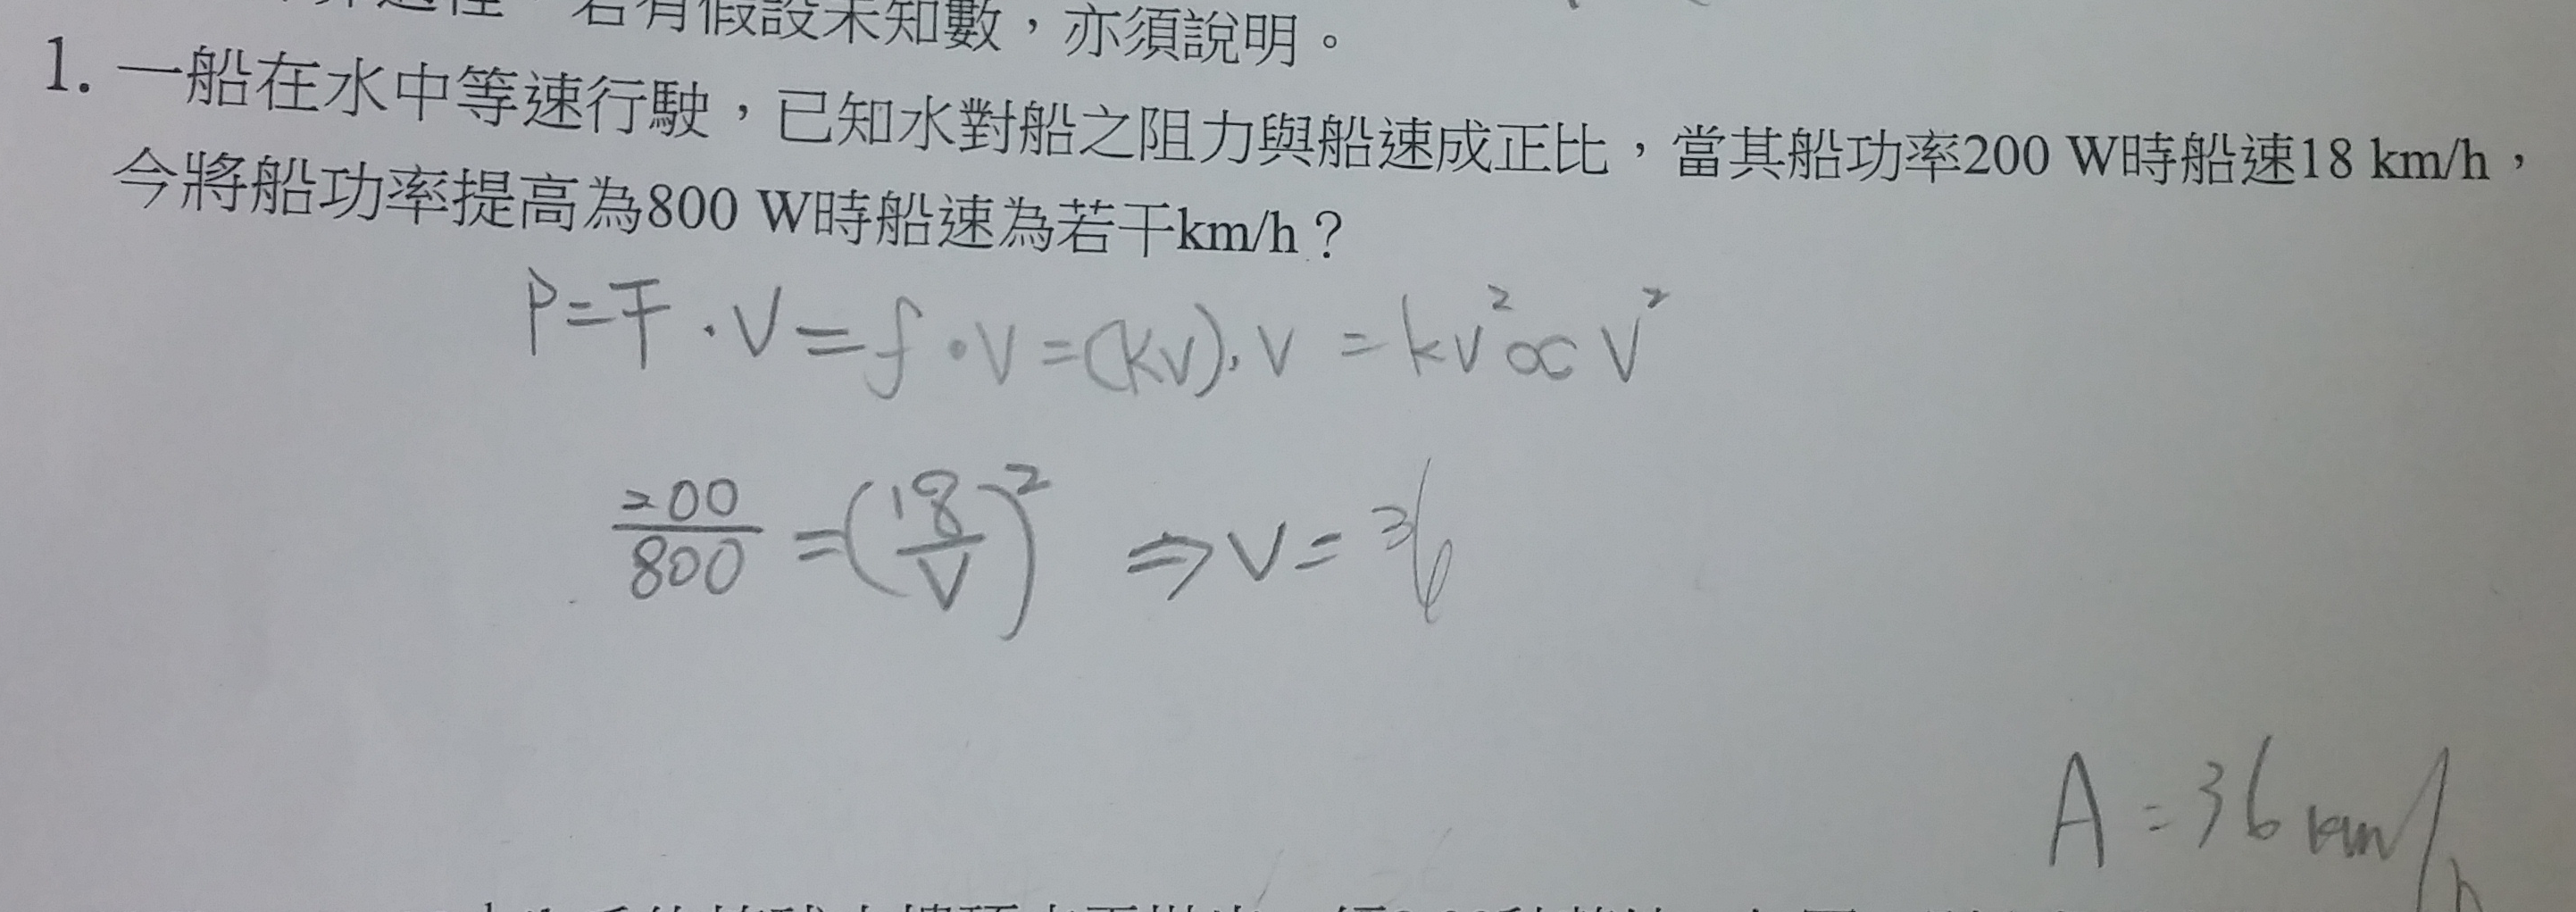 若有假設未知數，亦須說明。
1. 一船在水中等速行駛，已知水對船之阻力與船速成正比，當其船功率200 W時船速18 km/h，
今將船功率提高為800 W時船速為若干km/h？
P=F・V=f・V=(kV)・V=kV²∝V²
200/800=(18/V)²⇒V=36
A=36 km/h